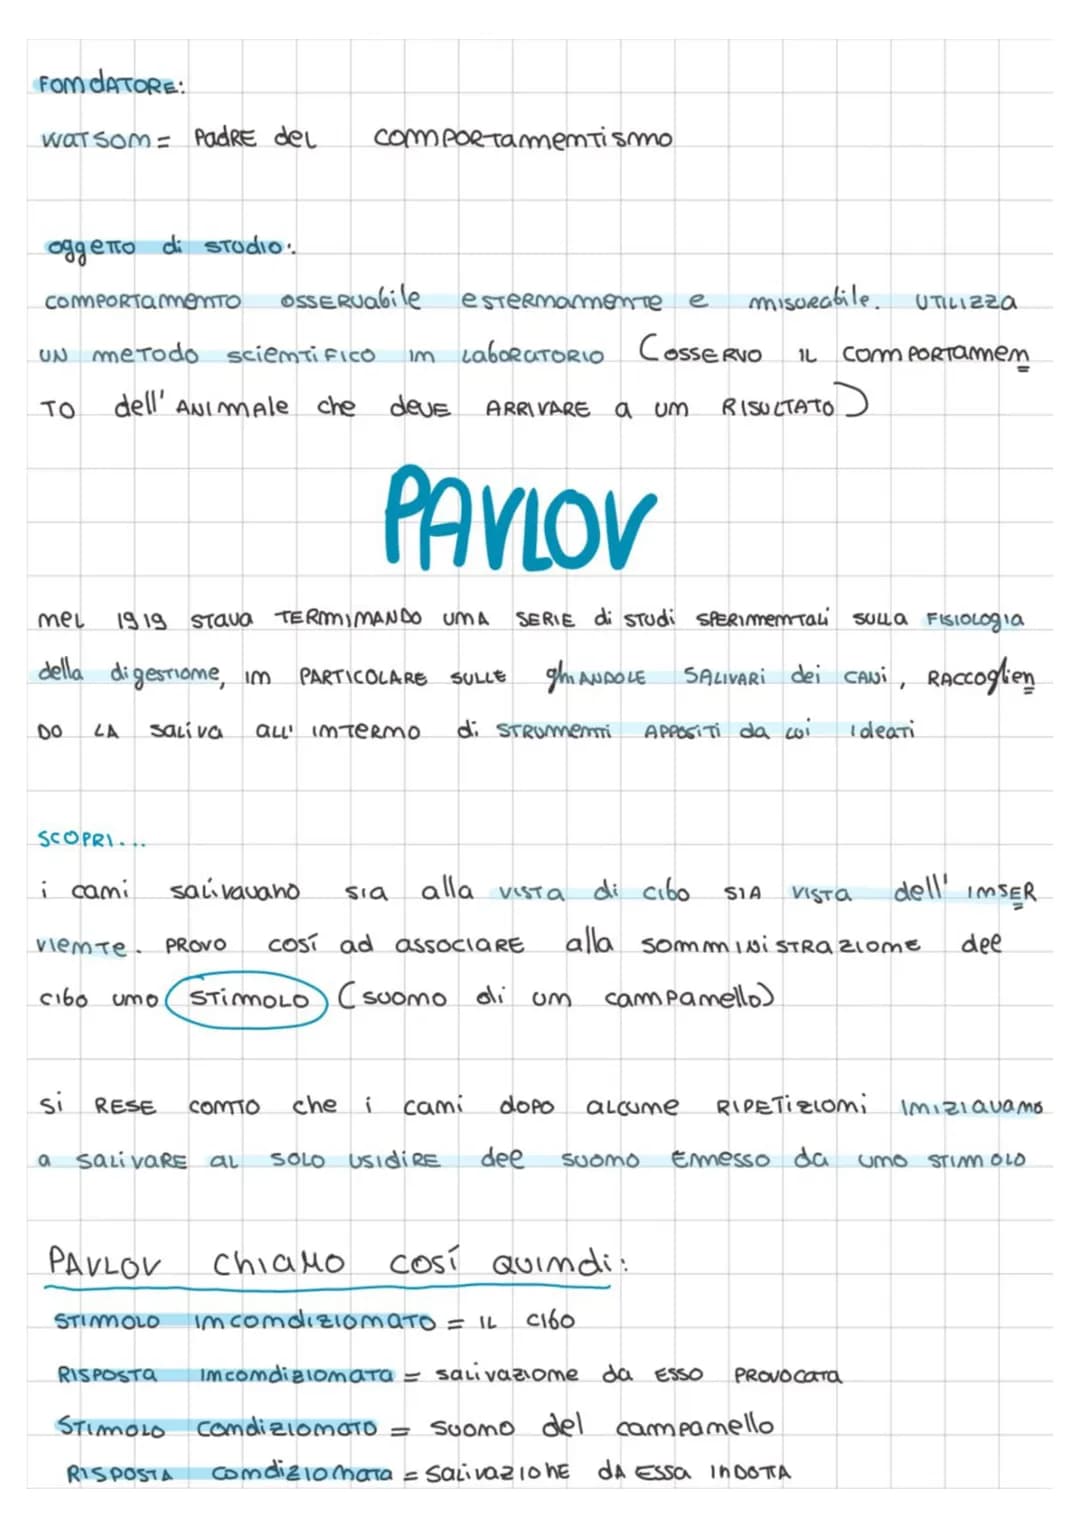 FOMdATORE:
WATSOM = PAdRE del COMPORTAMEMTISMO
oggetto di STUdio:
COMPORTAMENTO OSSERVABILE ESTERMAMENTE e misurabile. UTILIZZA
UN METODO SCIEMTIFICO IM LABORATORIO (OSSERVO IL COMPORTAMEN
TO dell' ANIMALE che dEVE ARRIVARE a UM RISULTATO)
PAVLOV
MEL 1919 STAVA TERMIMANDO UMA SERIE di STUdi SPERIMEMTALI SULLA FISIOLOGIA
della digestiome, IM PARTICOLARE SULLE ghIANDOLE SALIVARI dei CANi, RACCOglien
DO LA SALIVA ALL' IMTERMO di STRUMEMTI APPOSITI da lui Ideati
SCOPRI...
i cami salivavano sia alla VISTA di cibo SIA VISTA dell' IMSER
VIEMTE. PROVO cosí ad ASSOCIARE alla SOMMINISTRAZIOME del
cibo umo STIMOLO (SUOMO di um campamello)
Si RESE COMTO che i cami dopo alcume RIPETIZIOMI IMIZIAVAMO
a SALIVARE AL SOLO USIDIRE del SUOMO EMESSO da umo STIMOLO
PAVLOV ChIAMO cosí quimdi:
STIMOLO IMCOMdIZIOMATO = IL CIBO
RISPOSTA IMCOMdIZIOMATA = SALIVAZIOME da ESSO PROVOCATA
STIMOLO COMdIZIOMATO = SUOMO del campamello
RISPOSTA COMdIZIOMATA = SALIVAZIONE dA ESSA INDOTTA